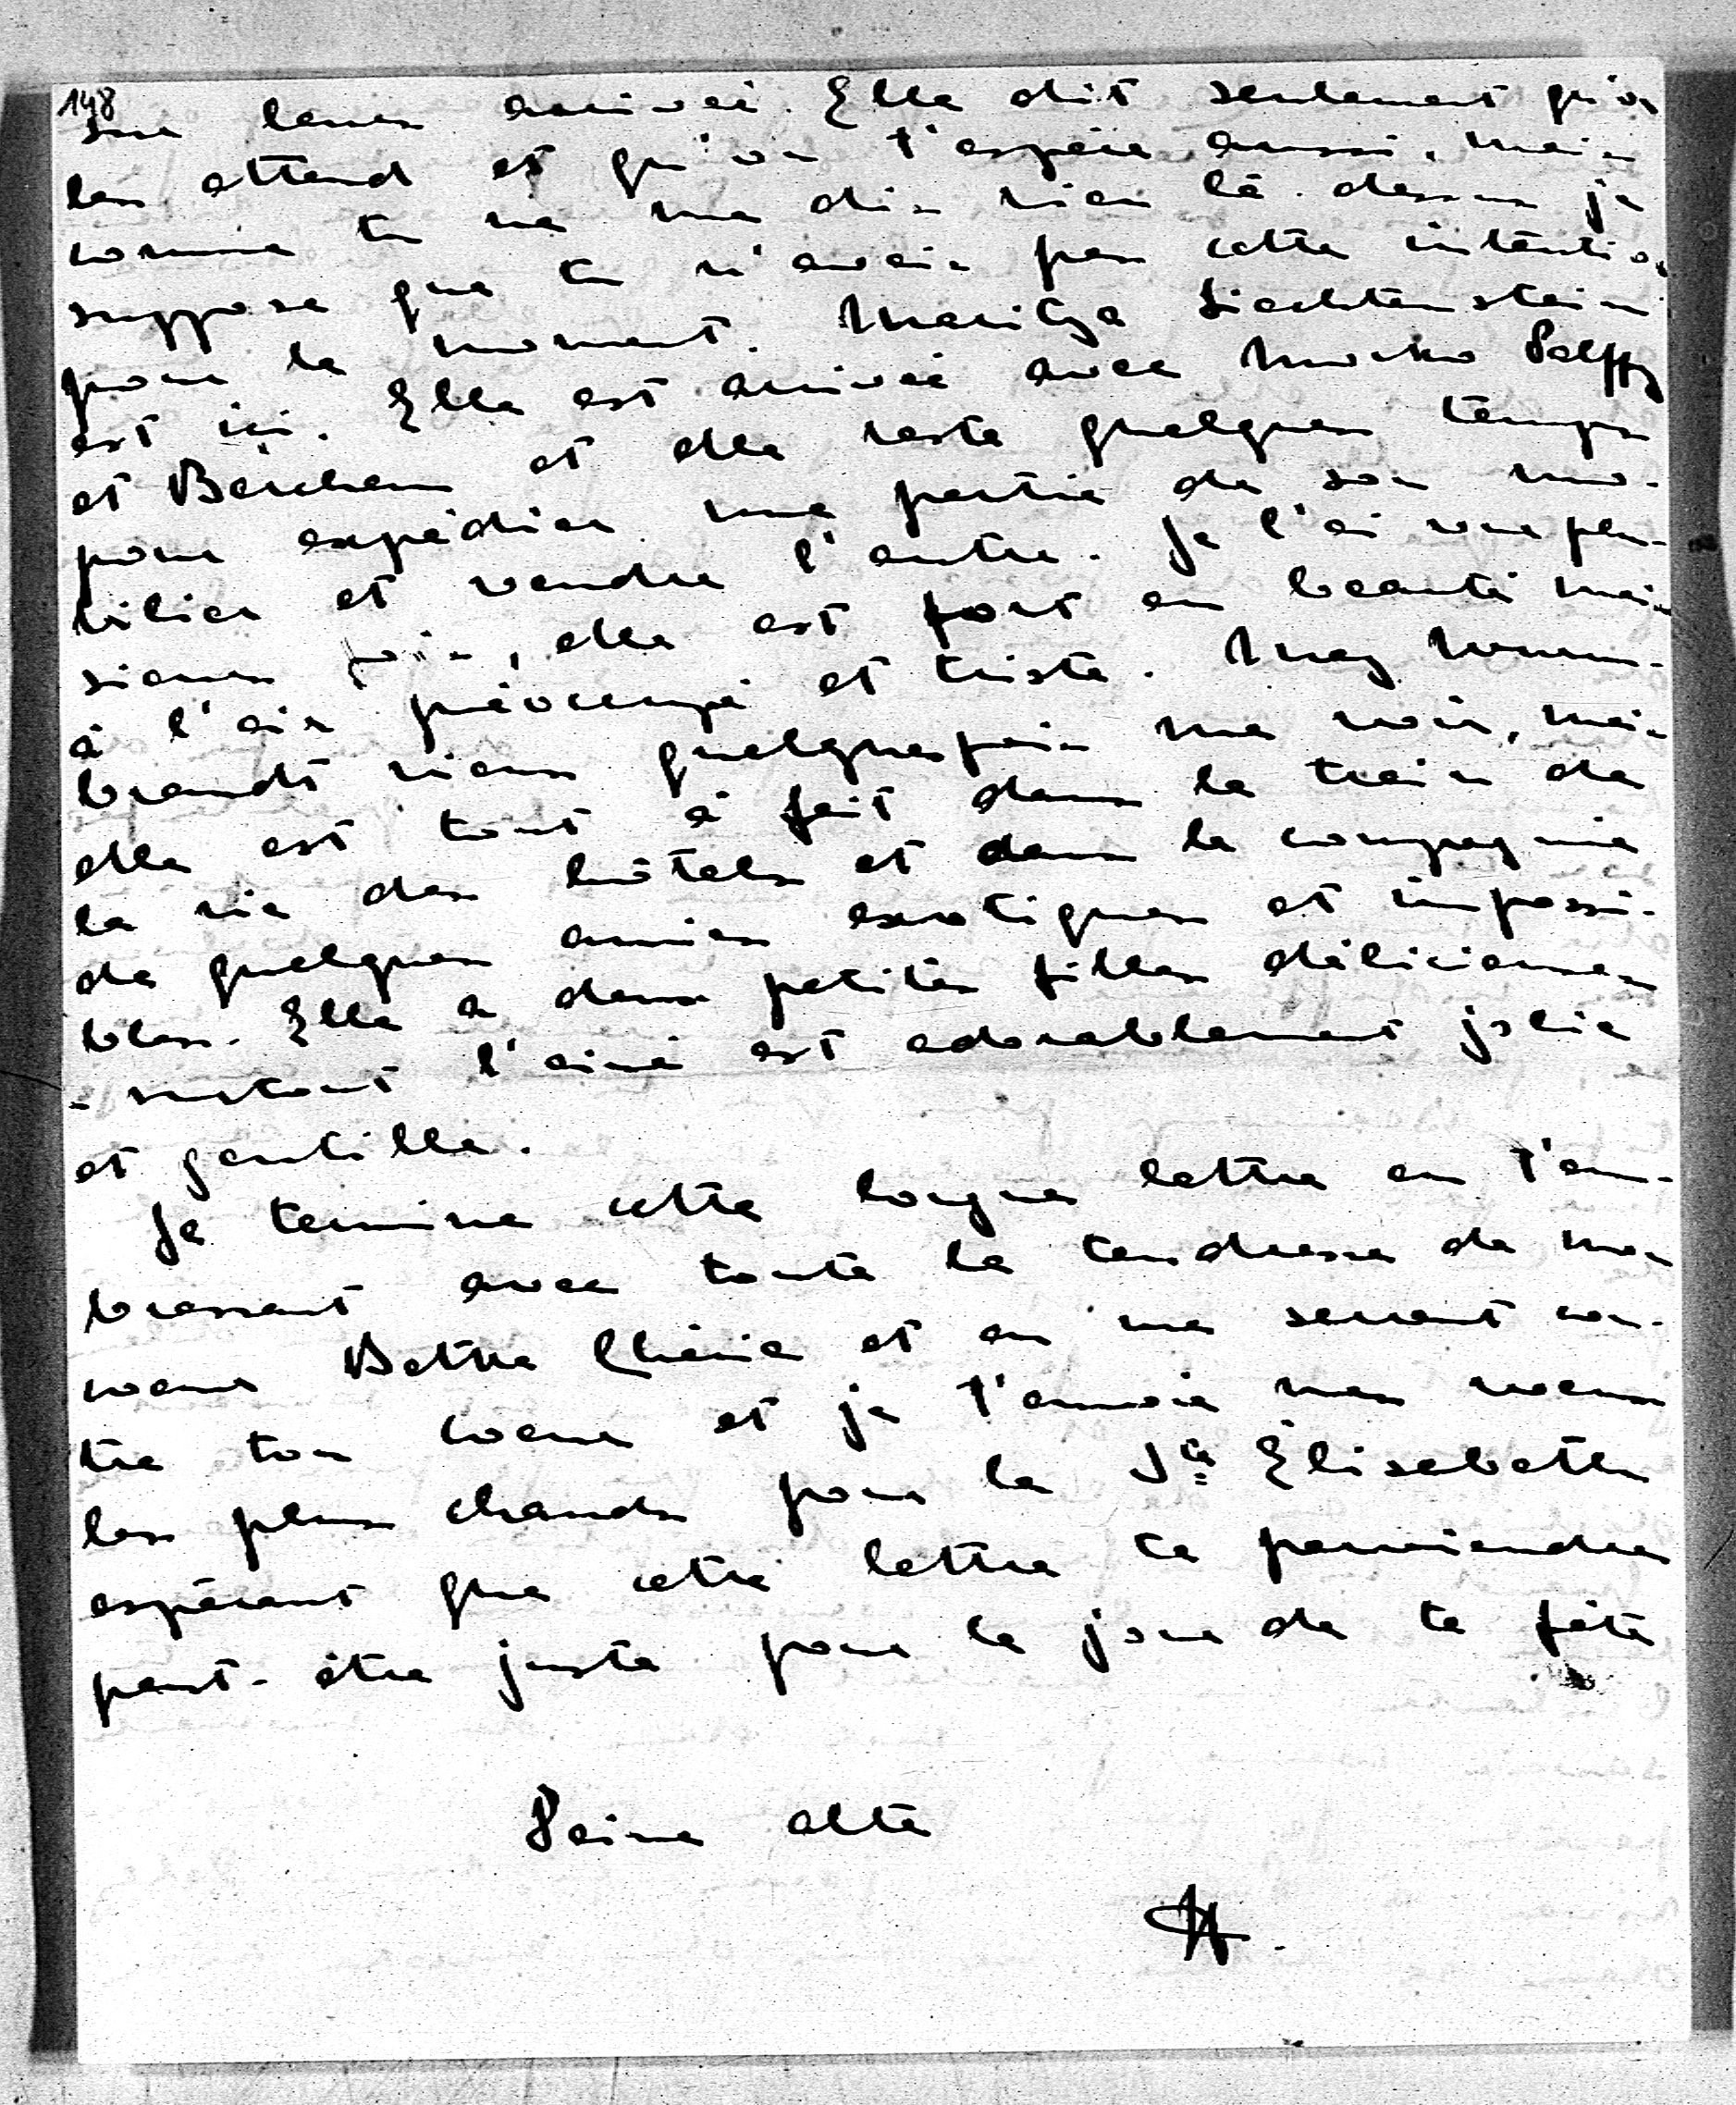 148
sur leur arrivée. Elle dit seulement qu'on
les attend et qu'on t'espère aussi, mais
comme tu ne me dis rien là-dessus je
suppose que tu n'avais pas cette intention
pour le moment. Maritza Liechtenstein
est ici. Elle est arrivée avec Moko Palffy
et Berchem et elle reste quelques temps
pour expédier une partie de son mo-
bilier et vendre l'autre. Je l'ai vue plu-
sieurs fois, elle est fort en beauté mais
à l'air préocupé et triste. May Wurm-
brandt vient quelquesfois me voir, mais
elle est tout à fait dans le train de
la vie des hôtels et dans la compagnie
de quelques amies exotiques et impossi-
bles. Elle a deux petites filles délicieuses
- surtout l'ainé est adorablement jolie
et gentille.
Je termine cette longue lettre en t'em-
brassant avec toute la tendresse de mon
coeur Bettie Chérie et en me serrant con-
tre ton coeur et je t'envoie mes voeux
les plus chauds pour la Ste Elisabeth
espérant que cette lettre te parviendra
peut-être juste pour le jour de ta fête
Deine alte